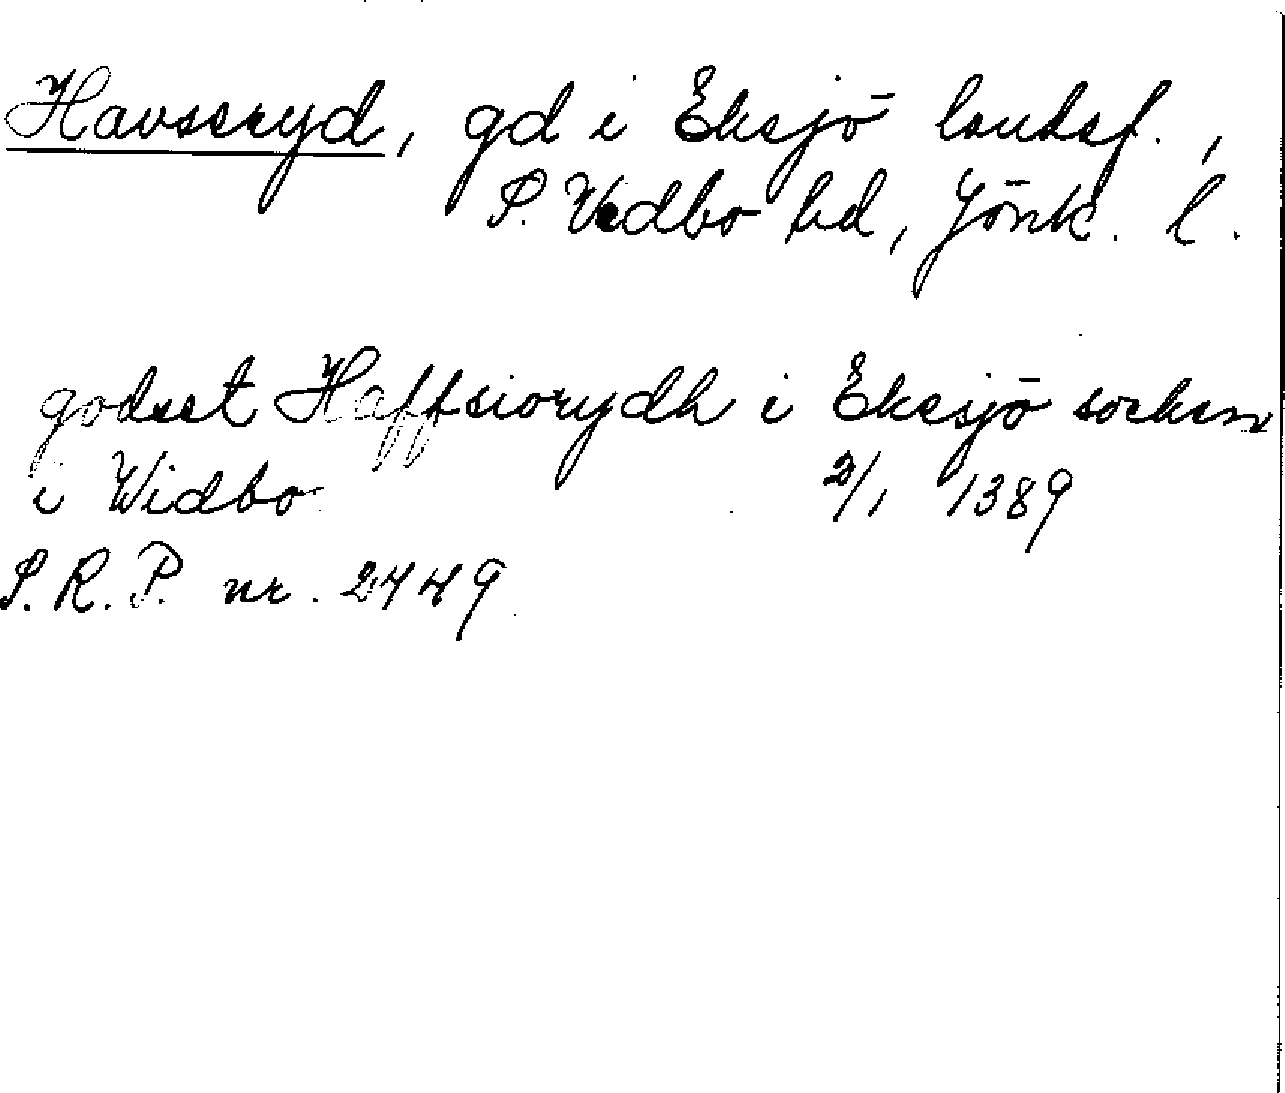 Havsseryd, gd i Eksjö landsf.,
S. Vedbo hd, Jönk. l.
godset Haffsiorydh i Eksjö socken
i Widbo 2/1 1389
S.R.P. nr. 2449